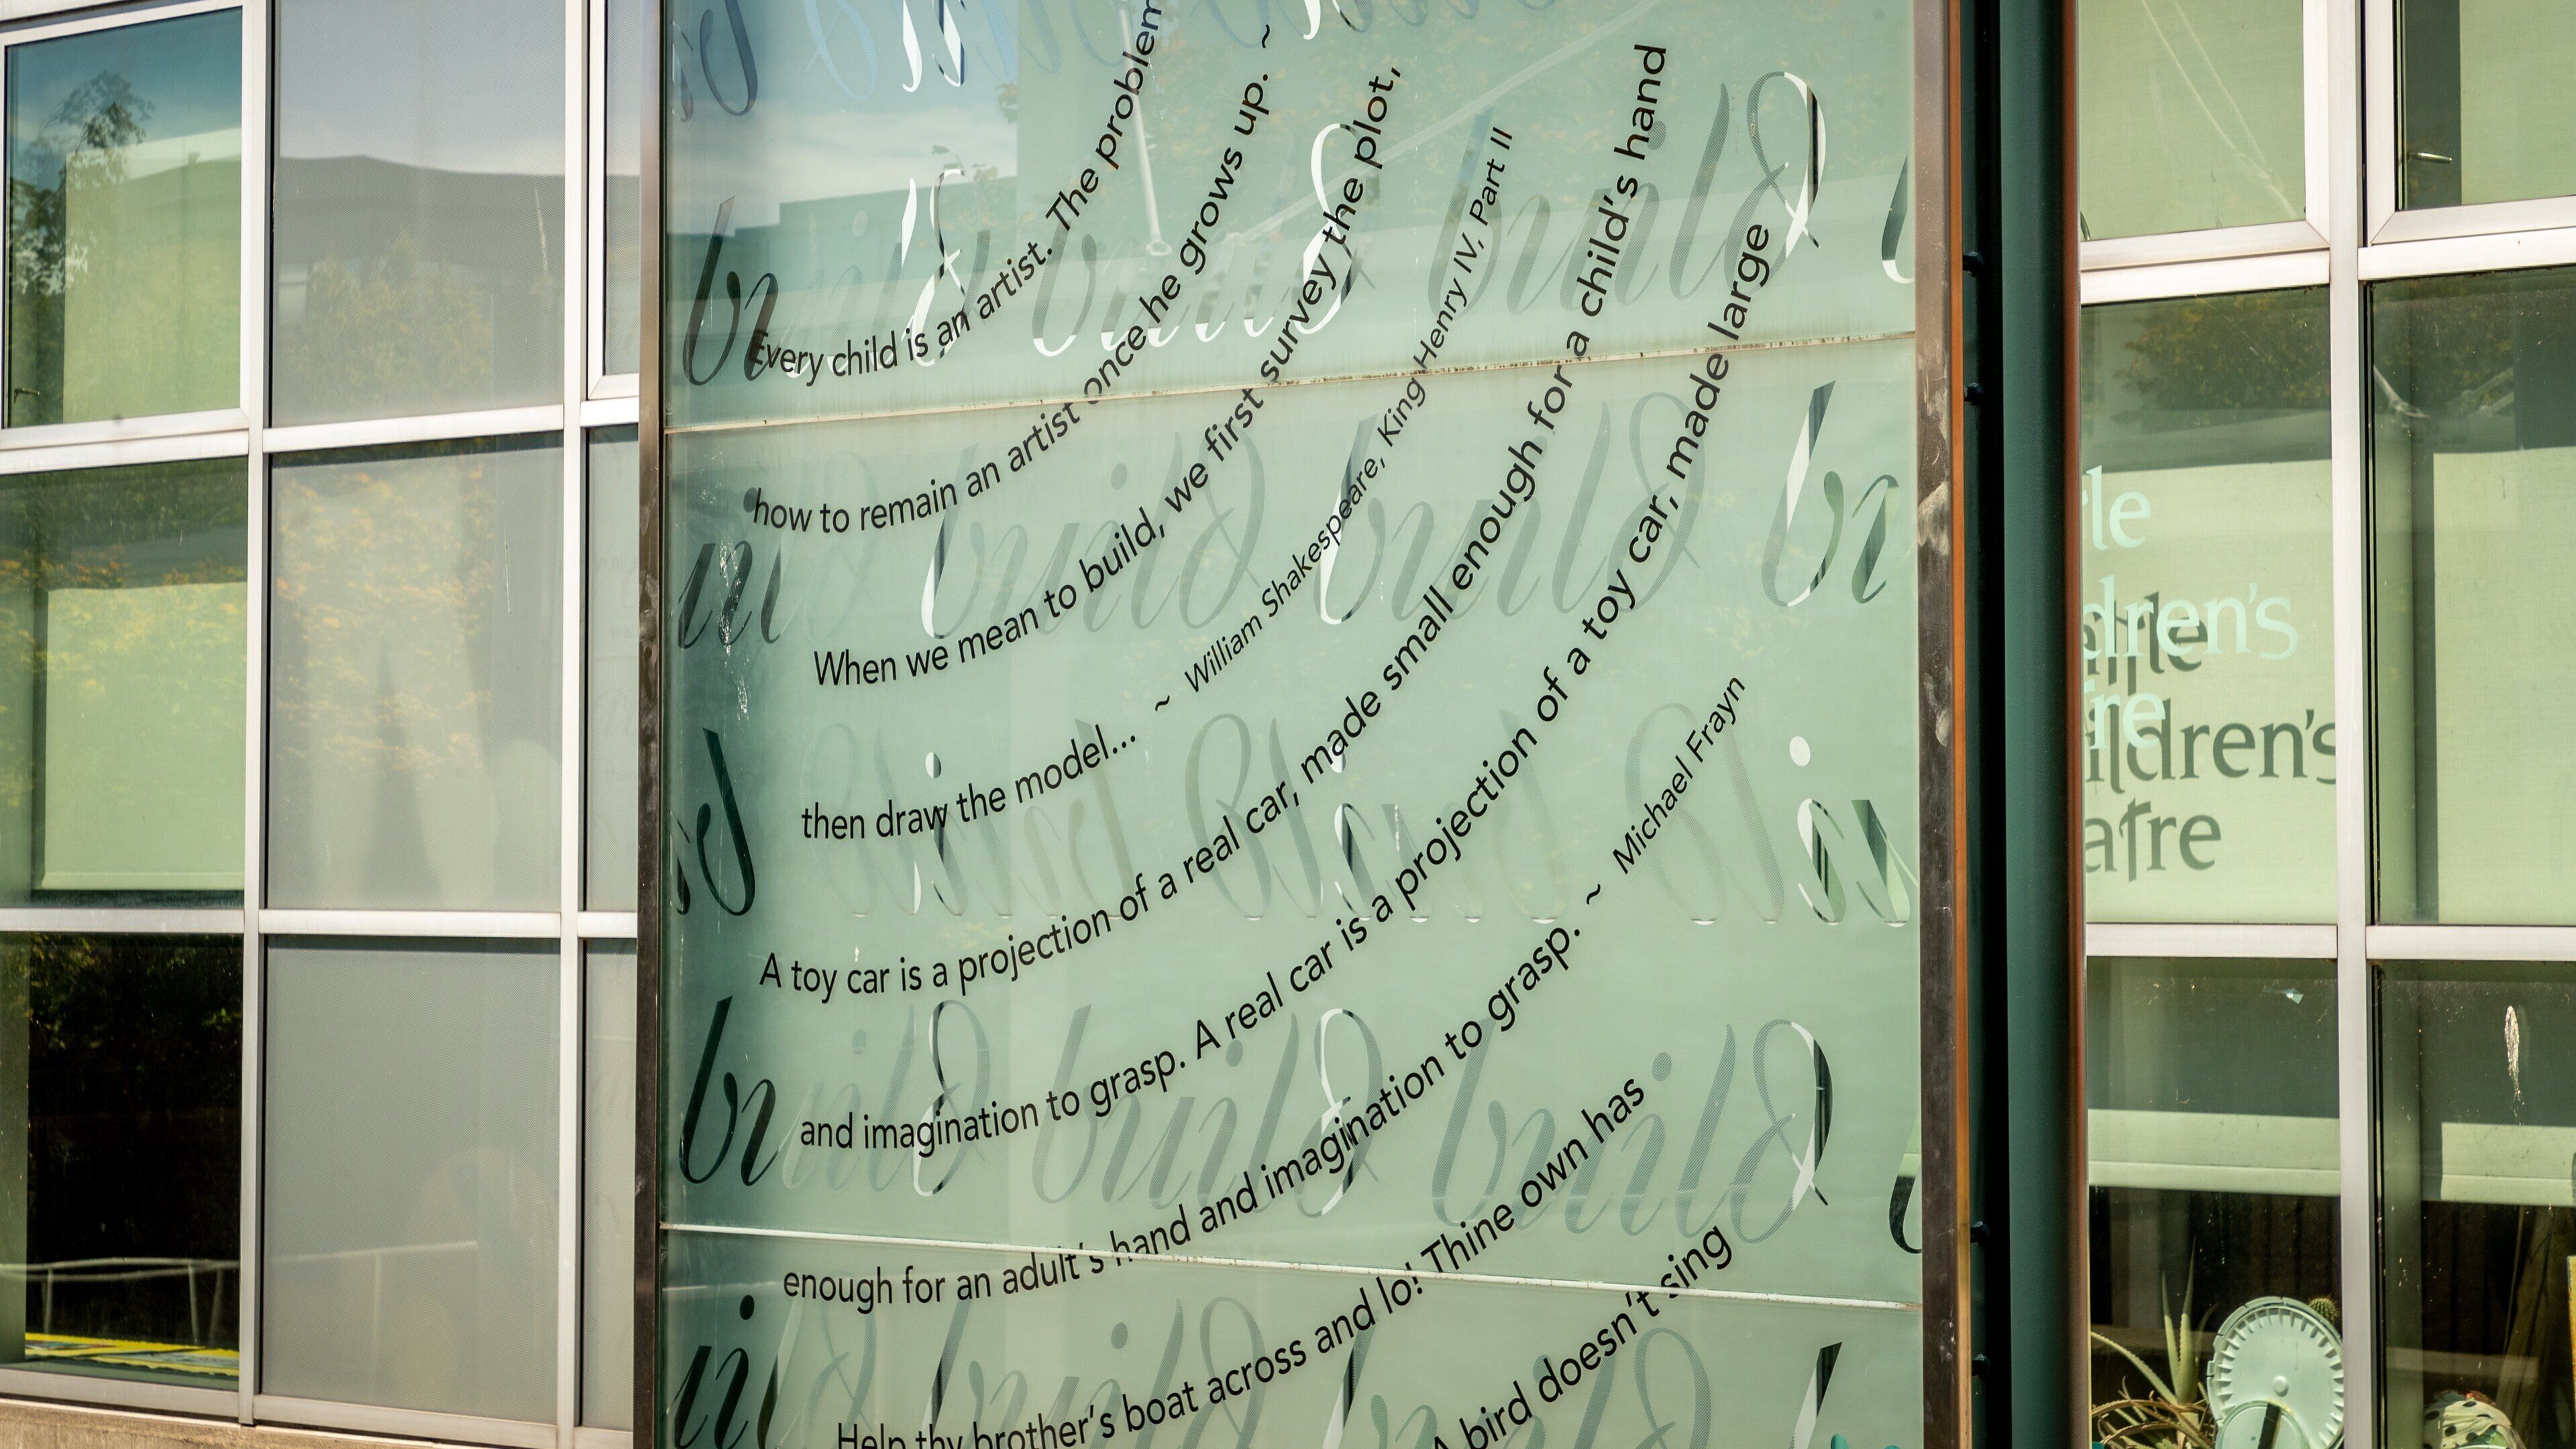 Every child is an artist. The problem
how to remain an artist once he grows up. ~
When we mean to build, we first survey the plot,
then draw the model... ~ William Shakespeare, King Henry IV, Part II
A toy car is a projection of a real car, made small enough for a child's hand
and imagination to grasp. A real car is a projection of a toy car, made large
enough for an adult's hand and imagination to grasp. ~ Michael Frayn
Help thy brother's boat across and lo! Thine own has
A bird doesn't sing
build build build
build build build
build build
build build build
build build
dren's
ildren's
atre